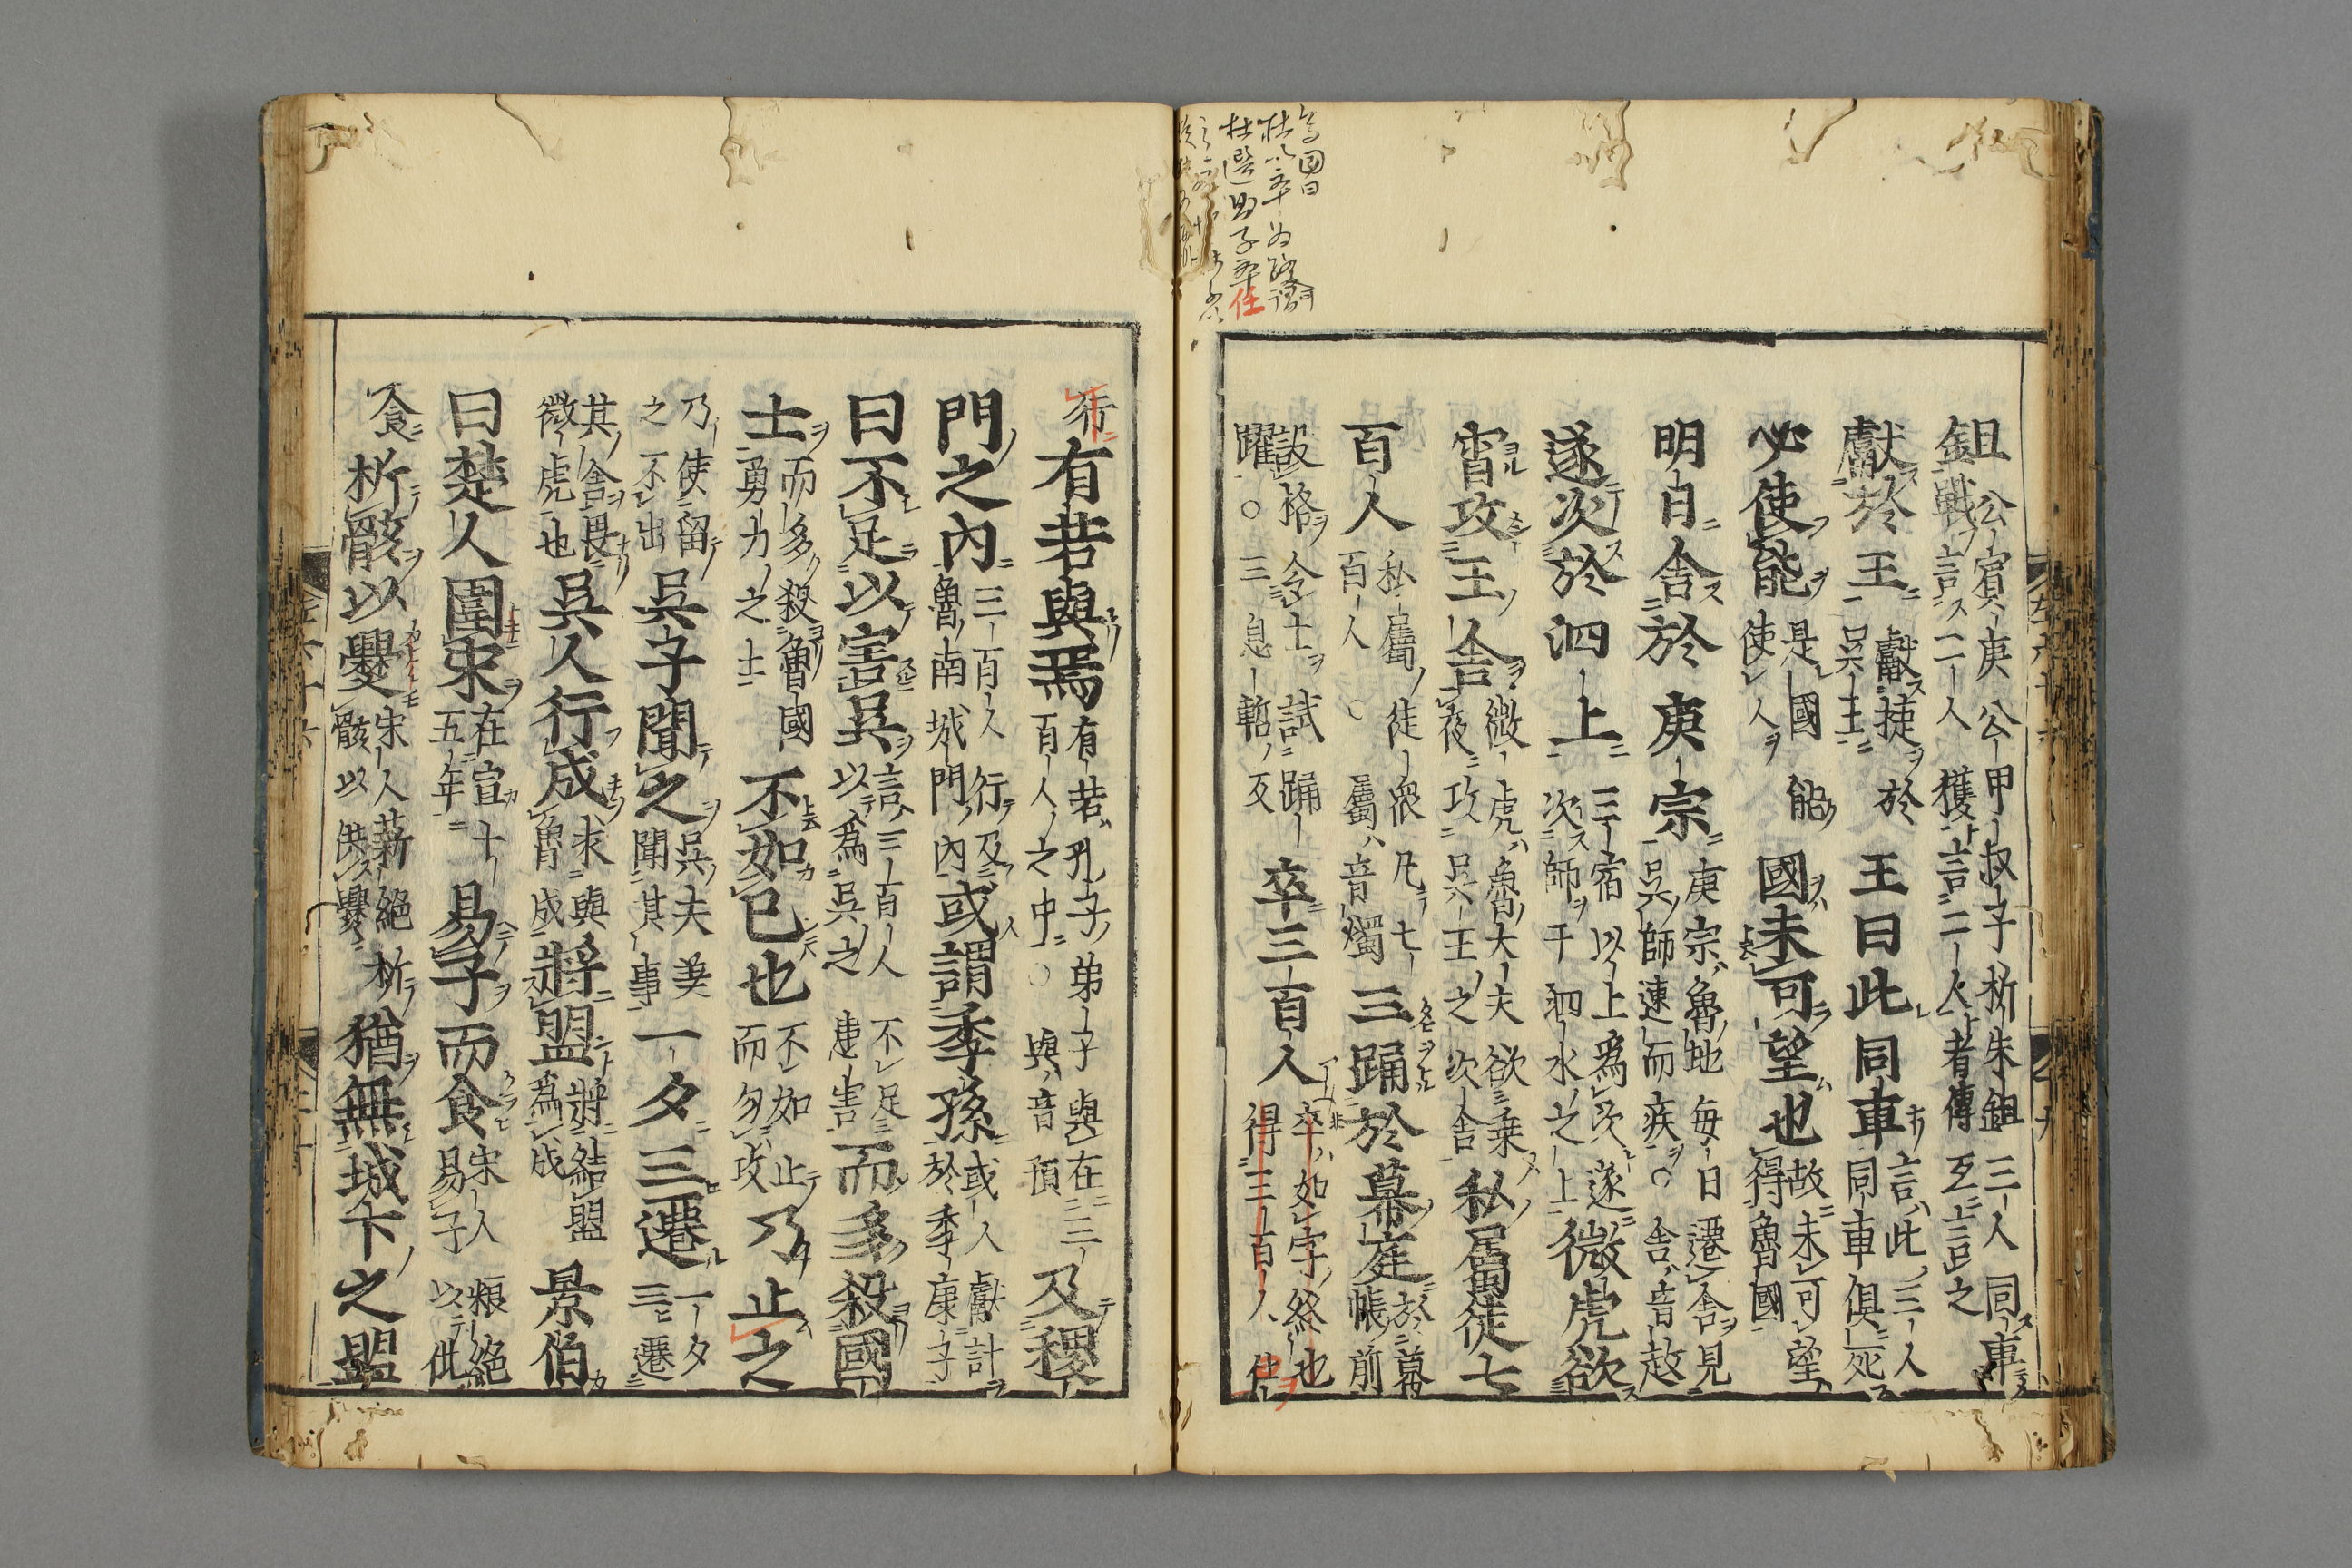 鉏公賓庚公甲叔子析朱鉏三人同車戰言二人獲言二人者傳互言之
獻於王獻捷於吳王王曰此同車言此三人同車俱死
必使能是國能使人國未可望也故未可望得魯國
明日舍於庚宗庚宗魯地每日遷舍見吳師速而疾○舍音赦
遂次於泗上三宿以上爲次遂次師于泗水之上微虎欲
宵攻王舍微虎魯大夫欲乘夜攻吳王之次舍私屬徒七
百人私屬徒衆凡七百人○屬音燭三踊於幕庭於幕帳前
設格令士試踊躍○三息暫反卒三百人卒如字終也得三百人使
行有若與焉有若孔子弟子與在三百人之中○與音預及稷
門之內三百人行及魯南城門內或謂季孫或人獻計於季康子
曰不足以害吳言三百人以爲吳之不足患害而多殺國
士而多殺魯國勇力之士不如已也不如止而勿攻乃止之
乃使留之不出吳子聞之吳夫差聞其事一夕三遷一夕三遷
其舍畏微虎也吳人行成求與魯成將盟將結盟爲成景伯
曰楚人圍宋在宣十五年易子而食宋人糧絕易子以供
食析骸以爨宋人薪絕析骸以供爨猶無城下之盟